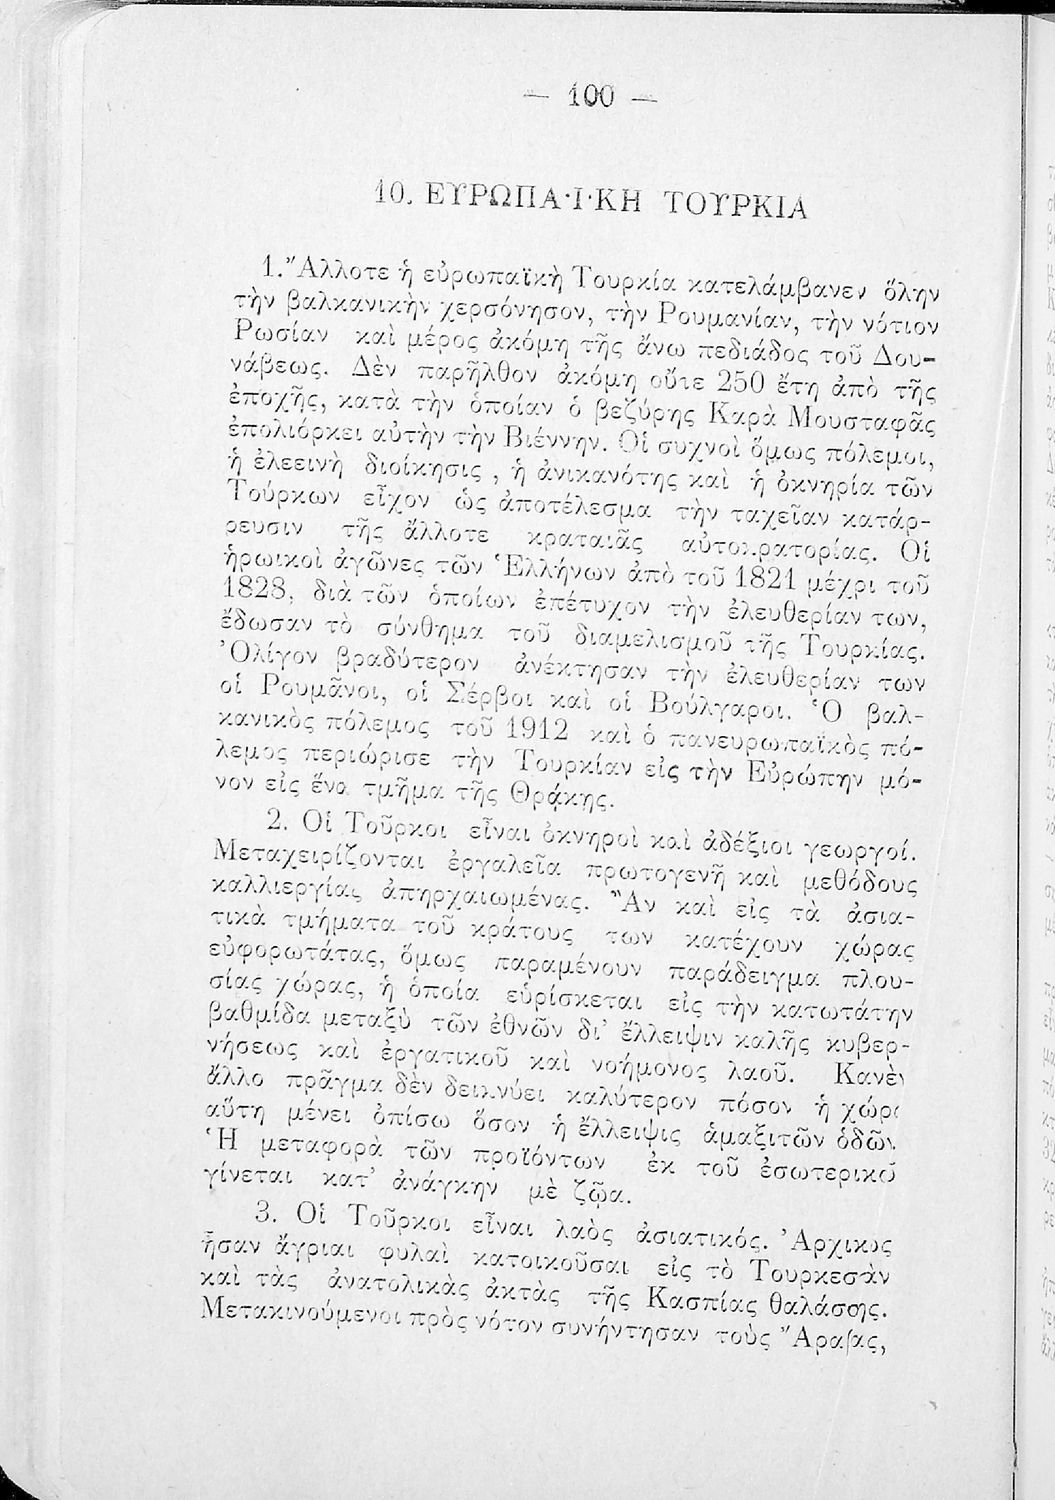 — 100 —
10. ΕΥΡΩΠΑ·Ι·ΚΗ ΤΟΥΡΚΙΑ
1. Ἄλλοτε ἡ εὐρωπαϊκὴ Τουρκία κατελάμβανεν ὅλην
τὴν βαλκανικὴν χερσόνησον, τὴν Ρουμανίαν, τὴν νότιον
Ρωσίαν καὶ μέρος ἀκόμη τῆς ἄνω πεδιάδος τοῦ Δου-
νάβεως. Δὲν παρῆλθον ἀκόμη οὔτε 250 ἔτη ἀπὸ τῆς
ἐποχῆς, κατὰ τὴν ὁποίαν ὁ βεζύρης Καρὰ Μουσταφᾶς
ἐπολιόρκει αὐτὴν τὴν Βιέννην. Οἱ συχνοὶ ὅμως πόλεμοι,
ἡ ἐλεεινὴ διοίκησις , ἡ ἀνικανότης καὶ ἡ ὀκνηρία τῶν
Τούρκων εἶχον ὡς ἀποτέλεσμα τὴν ταχεῖαν κατάρ-
ρευσιν τῆς ἄλλοτε κραταιᾶς αὐτοκρατορίας. Οἱ
ἡρωικοὶ ἀγῶνες τῶν Ἑλλήνων ἀπὸ τοῦ 1821 μέχρι τοῦ
1828, διὰ τῶν ὁποίων ἐπέτυχον τὴν ἐλευθερίαν των,
ἔδωσαν τὸ σύνθημα τοῦ διαμελισμοῦ τῆς Τουρκίας.
Ὀλίγον βραδύτερον ἀνέκτησαν τὴν ἐλευθερίαν των
οἱ Ρουμᾶνοι, οἱ Σέρβοι καὶ οἱ Βούλγαροι. Ὁ βαλ-
κανικὸς πόλεμος τοῦ 1912 καὶ ὁ πανευρωπαϊκὸς πό-
λεμος περιώρισε τὴν Τουρκίαν εἰς τὴν Εὐρώπην μό-
νον εἰς ἕνα τμῆμα τῆς Θράκης.
2. Οἱ Τοῦρκοι εἶναι ὀκνηροὶ καὶ ἀδέξιοι γεωργοί.
Μεταχειρίζονται ἐργαλεῖα πρωτογενῆ καὶ μεθόδους
καλλιεργίας ἀπηρχαιωμένας. Ἂν καὶ εἰς τὰ ἀσια-
τικὰ τμήματα τοῦ κράτους των κατέχουν χώρας
εὐφορωτάτας, ὅμως παραμένουν παράδειγμα πλου-
σίας χώρας, ἡ ὁποία εὑρίσκεται εἰς τὴν κατωτάτην
βαθμίδα μεταξὺ τῶν ἐθνῶν δι' ἔλλειψιν καλῆς κυβερ-
νήσεως καὶ ἐργατικοῦ καὶ νοήμονος λαοῦ. Κανὲν
ἄλλο πρᾶγμα δὲν δεικνύει καλύτερον πόσον ἡ χώρα
αὕτη μένει ὀπίσω ὅσον ἡ ἔλλειψις ἁμαξιτῶν ὁδῶν.
Ἡ μεταφορὰ τῶν προϊόντων ἐκ τοῦ ἐσωτερικοῦ
γίνεται κατ' ἀνάγκην μὲ ζῷα.
3. Οἱ Τοῦρκοι εἶναι λαὸς ἀσιατικός. Ἀρχικῶς
ἦσαν ἄγριαι φυλαὶ κατοικοῦσαι εἰς τὸ Τουρκεστὰν
καὶ τὰς ἀνατολικὰς ἀκτὰς τῆς Κασπίας θαλάσσης.
Μετακινούμενοι πρὸς νότον συνήντησαν τοὺς Ἄραβας,